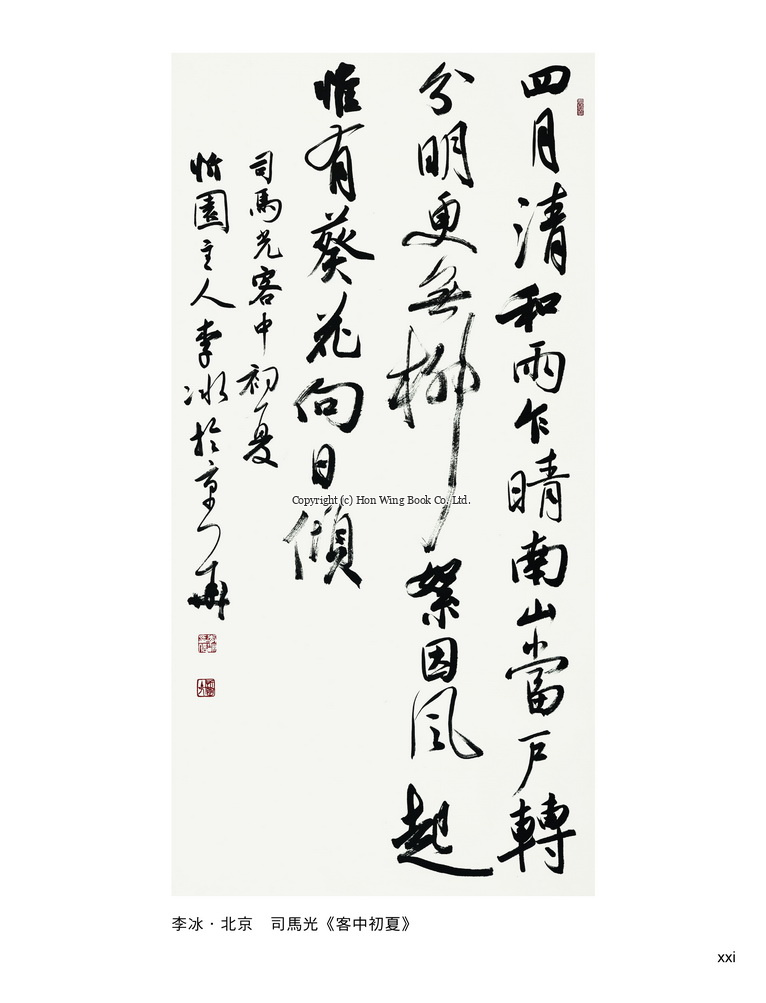 四月清和雨乍晴南山當戶轉
分明更無柳絮因風起
惟有葵花向日傾
司馬光客中初夏
怡園主人李冰於京
Copyright (c) Hon Wing Book Co. Ltd.
李冰·北京　司馬光《客中初夏》
xxi